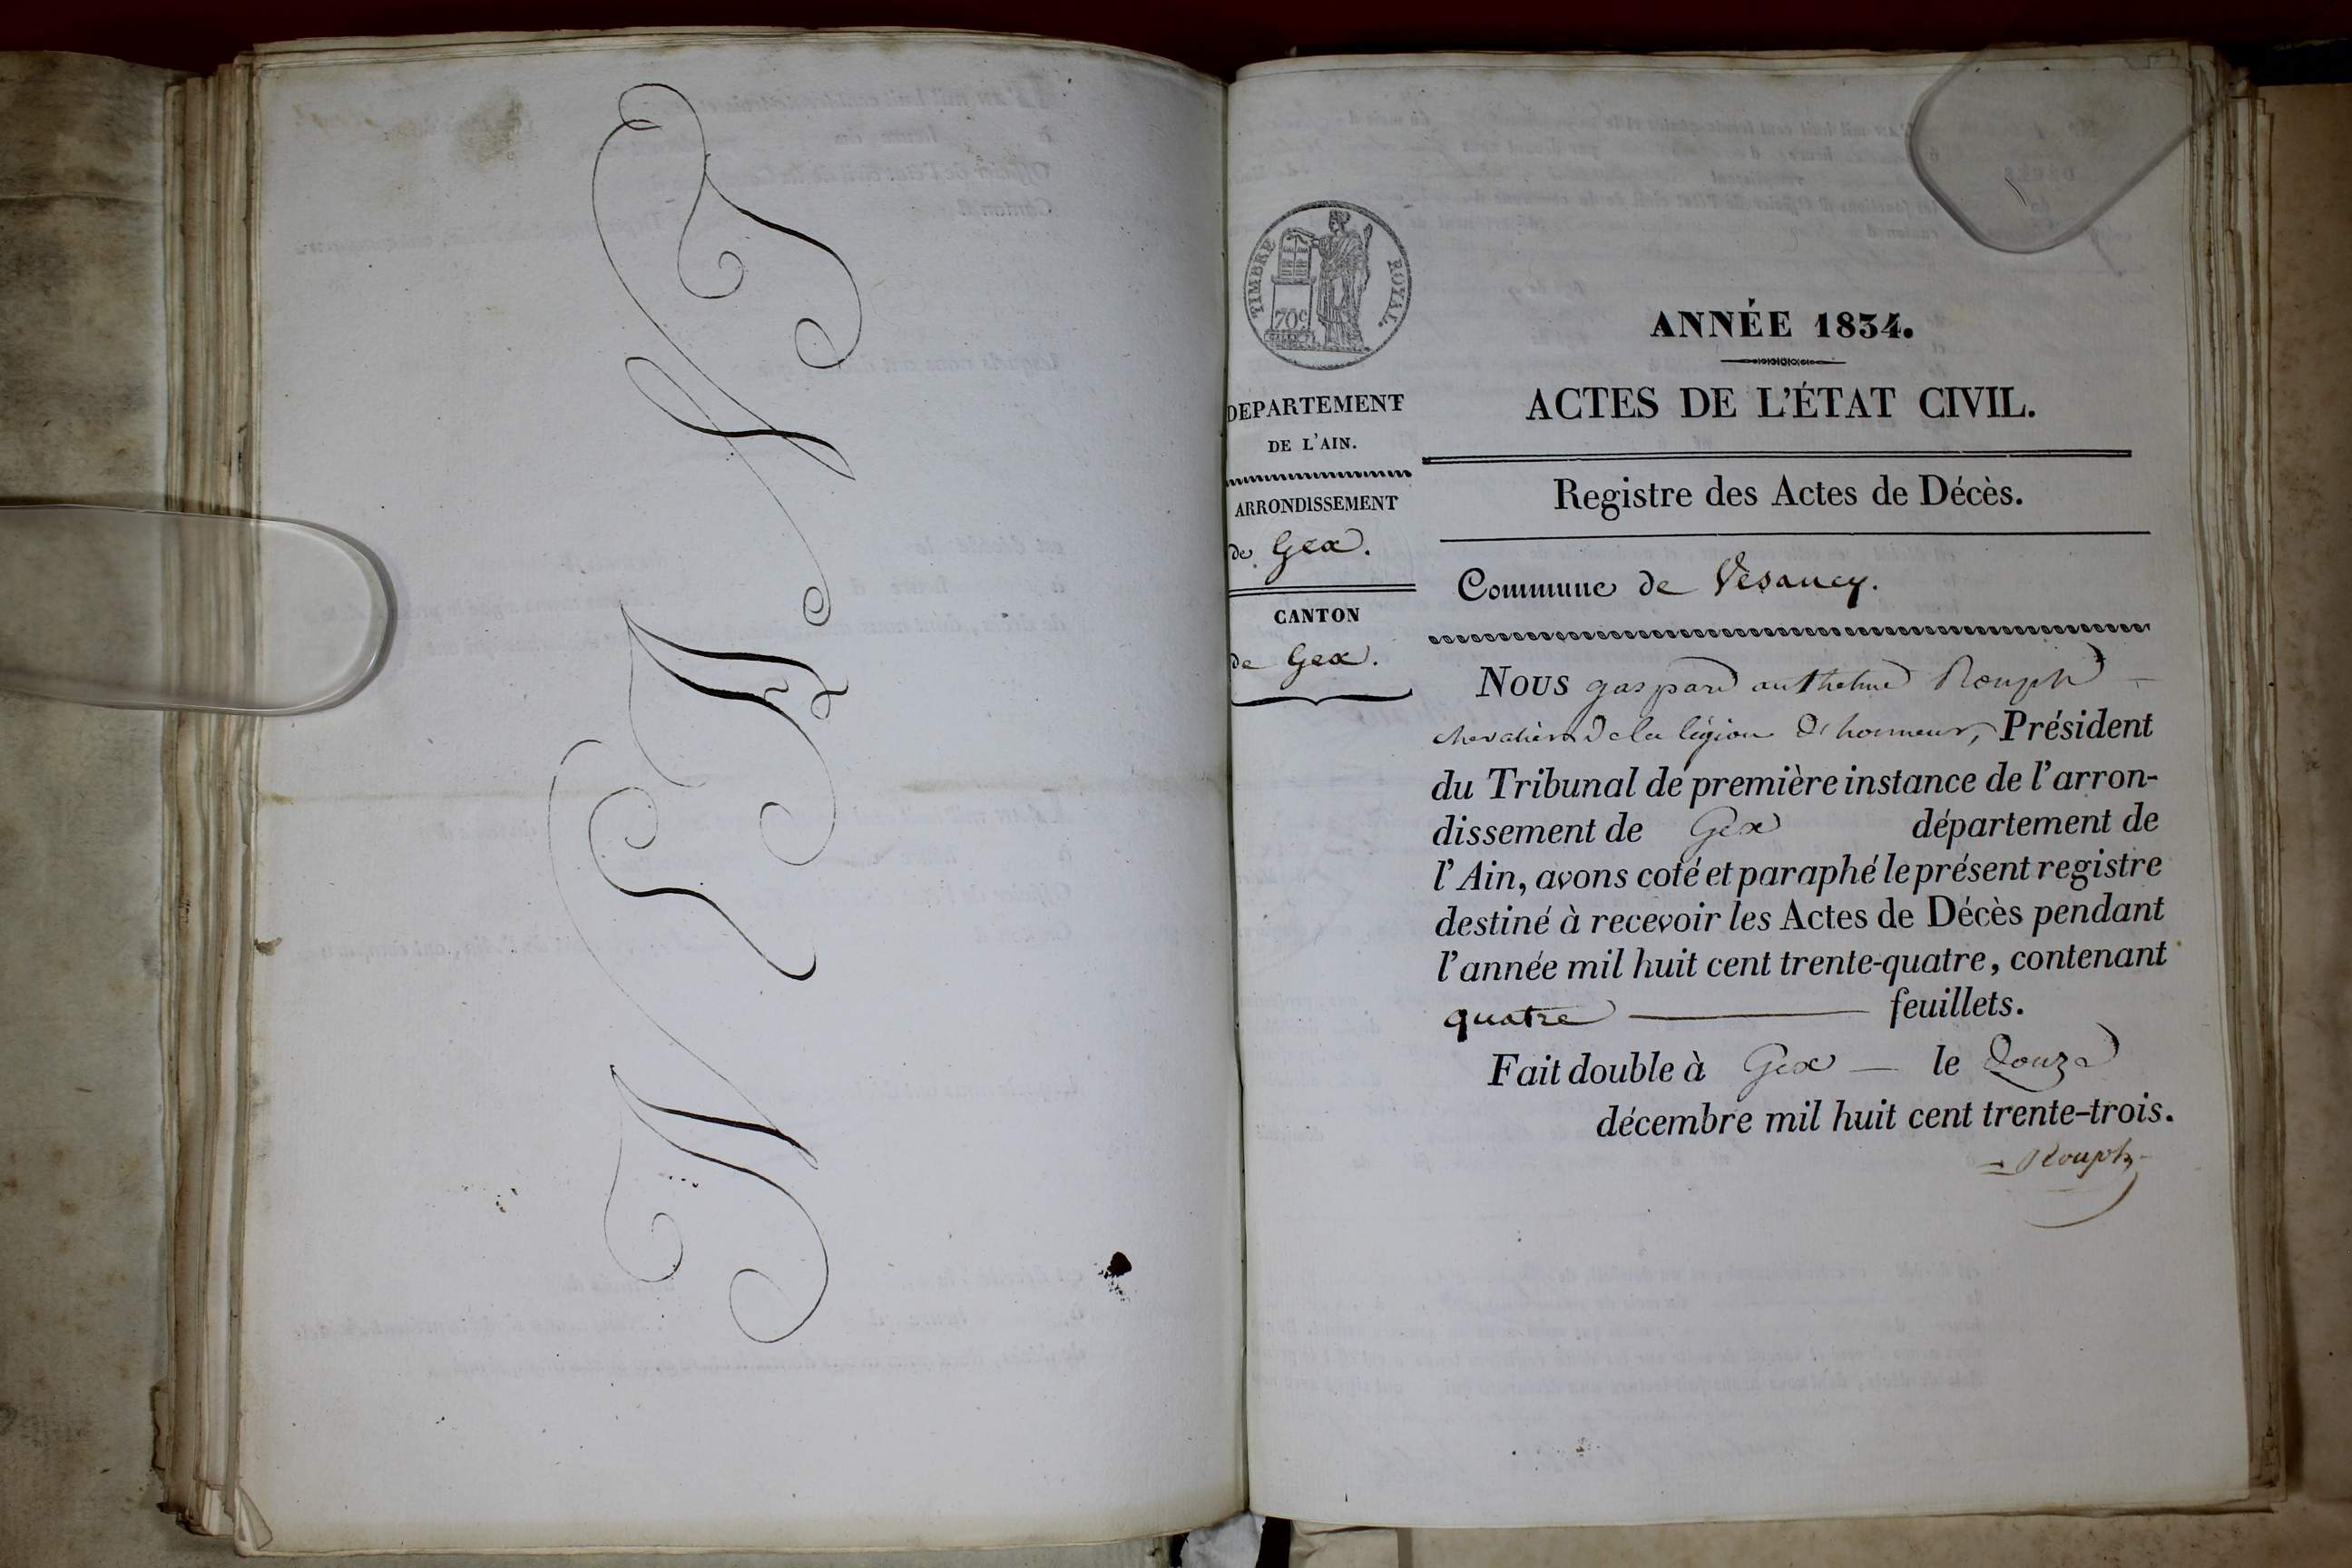 TIMBRE ROYAL.
70c
DEPARTEMENT
DE L'AIN.
ARRONDISSEMENT
de Gex.
CANTON
de Gex.
ANNÉE 1834.
ACTES DE L'ÉTAT CIVIL.
Registre des Actes de Décès.
Commune de Vesancy.
Nous gaspard anthelme Rouph
chevalier de la légion d'honneur, Président
du Tribunal de première instance de l'arron-
dissement de Gex département de
l'Ain, avons coté et paraphé le présent registre
destiné à recevoir les Actes de Décès pendant
l'année mil huit cent trente-quatre, contenant
quatre feuillets.
Fait double à Gex — le Douze
décembre mil huit cent trente-trois.
Rouph